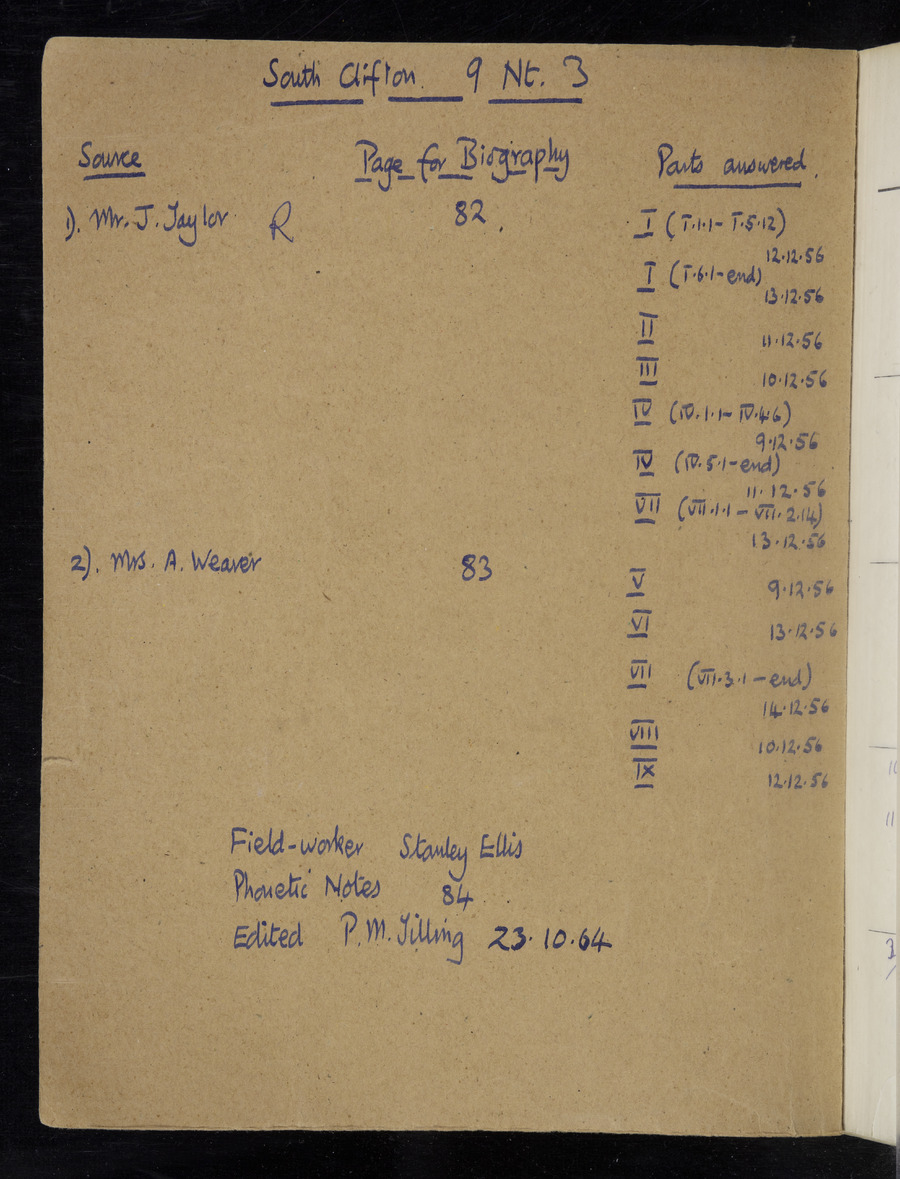 South Clifton. 9 Nt. 3
Source Page for Biography Parts answered.
1). Mr. J. Taylor R 82. I (I.1.1 - I.5.12)
12.12.56
I (I.6.1 - end)
13.12.56
II 11.12.56
III 10.12.56
IV (IV.1.1 - IV.4.6)
9.12.56
IV (IV.5.1 - end)
11.12.56
VII (VII.1.1 - VII.2.14)
13.12.56
2). Mrs. A. Weaver 83 V 9.12.56
VI 13.12.56
VII (VII.3.1 - end)
14.12.56
VIII 10.12.56
IX 12.12.56
Field-worker Stanley Ellis
Phonetic Notes 84.
Edited P.M. Tilling 23.10.64